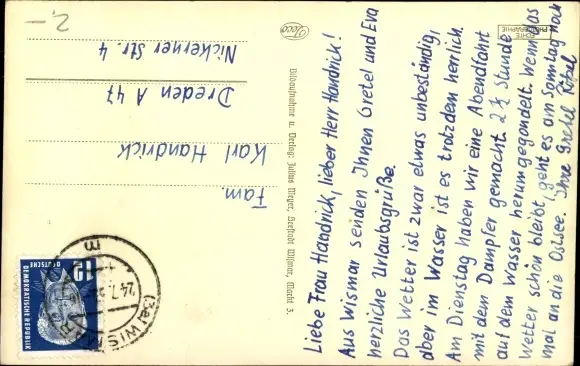 Liebe Frau Handrick, lieber Herr Handrick!
Aus Wismar senden Ihnen Gretel und Eva
herzliche Urlaubsgrüße.
Das Wetter ist zwar etwas unbeständig,
aber im Wasser ist es trotzdem herrlich.
Am Dienstag haben wir eine Abendfahrt
mit dem Dampfer gemacht. 2½ Stunde
auf dem Wasser herumgegondelt. Wenn das
Wetter schön bleibt, geht es am Sonntag noch
mal an die Ostsee. Ihre Gretel
Fam.
Karl Handrick
Dreden A 47
Nickerner Str. 4
Bildaufnahme u. Verlag: Julius Meyer, Seestadt Wismar, Markt 3.
ECHTE
PHOTOGRAPHIE
12
DEUTSCHE
DEMOKRATISCHE REPUBLIK
WISM
24.7.
m
2,-